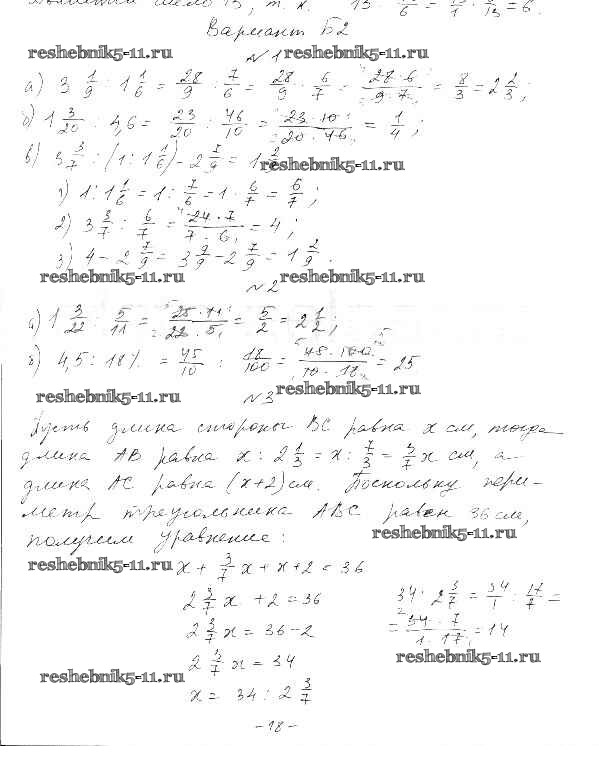 Вариант Б2
reshebnik5-11.ru № 1 reshebnik5-11.ru
а) 3 1/9 : 1 1/6 = 28/9 : 7/6 = 28/9 · 6/7 = 28·6/9·7 = 8/3 = 2 2/3;
б) 1 3/20 : 4,6 = 23/20 : 46/10 = 23·10/20·46 = 1/4;
в) 3 3/7 : (1 : 1 1/6) - 2 7/9 = 1 2/9
reshebnik5-11.ru
1) 1 : 1 1/6 = 1 : 7/6 = 1 · 6/7 = 6/7;
2) 3 3/7 : 6/7 = 24·7/7·6 = 4;
3) 4 - 2 7/9 = 3 9/9 - 2 7/9 = 1 2/9.
reshebnik5-11.ru № 2 reshebnik5-11.ru
а) 1 3/22 : 5/11 = 25·11/22·5 = 5/2 = 2 1/2;
б) 4,5 : 18% = 45/10 : 18/100 = 45·100/10·18 = 25
reshebnik5-11.ru № 3 reshebnik5-11.ru
Пусть длина стороны BC равна x см, тогда
длина AB равна x : 2 1/3 = x : 7/3 = 3/7 x см, а
длина AC равна (x+2) см. Поскольку пери-
метр треугольника ABC равен 36 см,
получим уравнение: reshebnik5-11.ru
reshebnik5-11.ru x + 3/7 x + x + 2 = 36
2 3/7 x + 2 = 36
2 3/7 x = 36 - 2
2 3/7 x = 34
reshebnik5-11.ru
x = 34 : 2 3/7
34 : 2 3/7 = 34/1 : 17/7 =
= 34·7/1·17 = 14
reshebnik5-11.ru
- 18 -